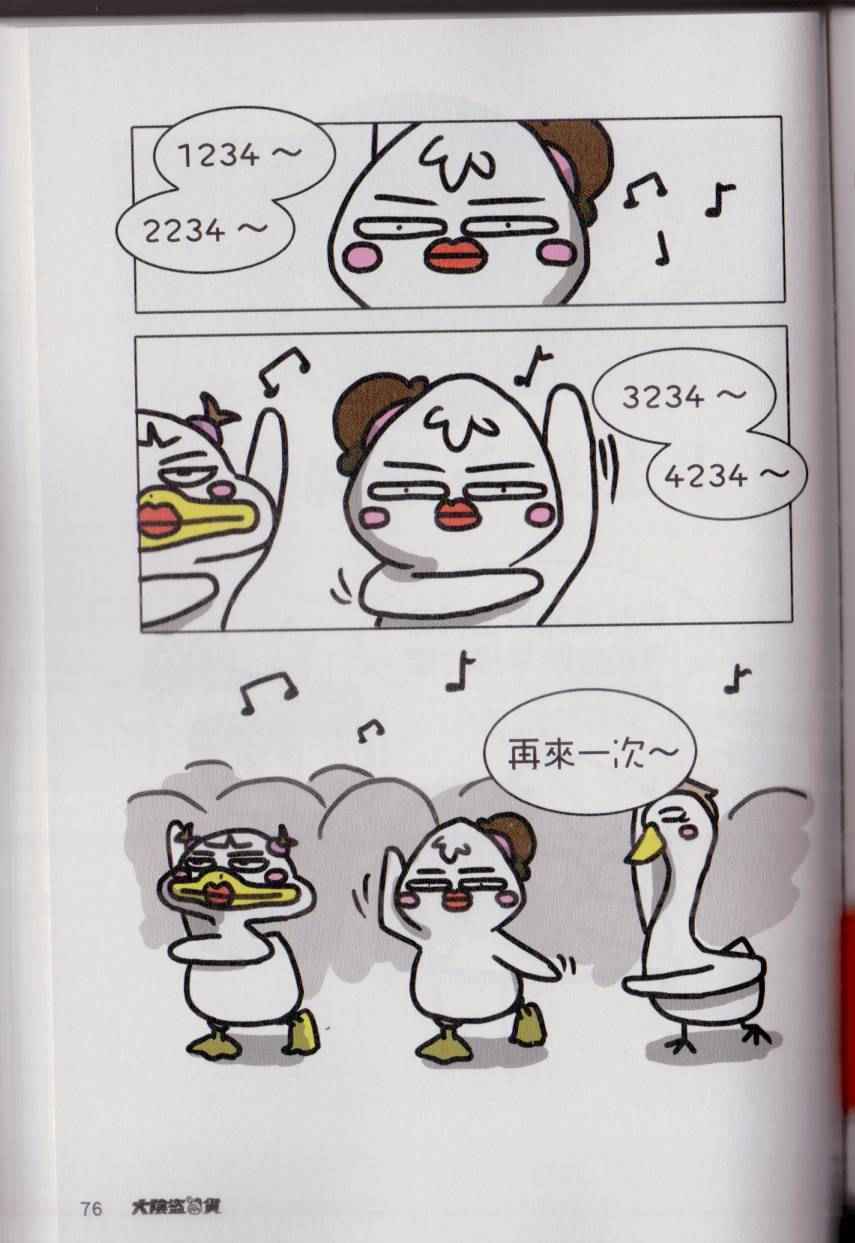 1234～
2234～
3234～
4234～
再來一次～
76
大陰盜百貨